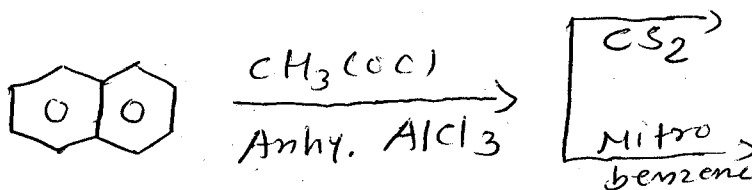 CH3COCl
Anhy. AlCl3
CS2
Nitro
benzene